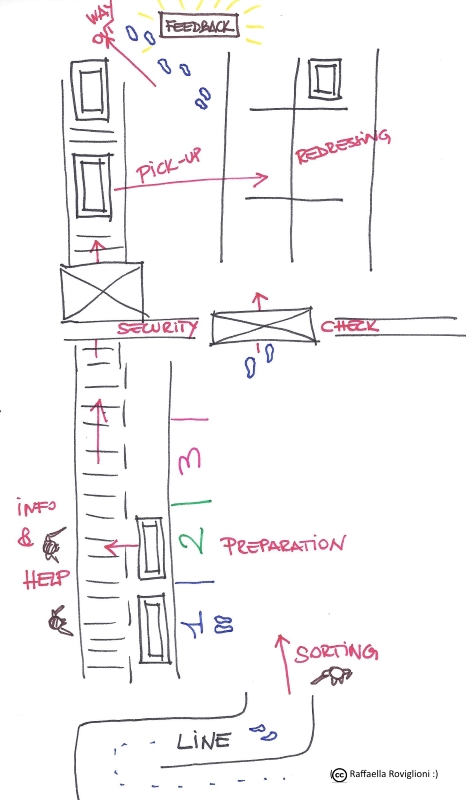 WAY
OUT
FEEDBACK
PICK-UP
REDRESSING
SECURITY CHECK
3
INFO
&
HELP
2
PREPARATION
1
SORTING
LINE
cc Raffaella Roviglioni :)